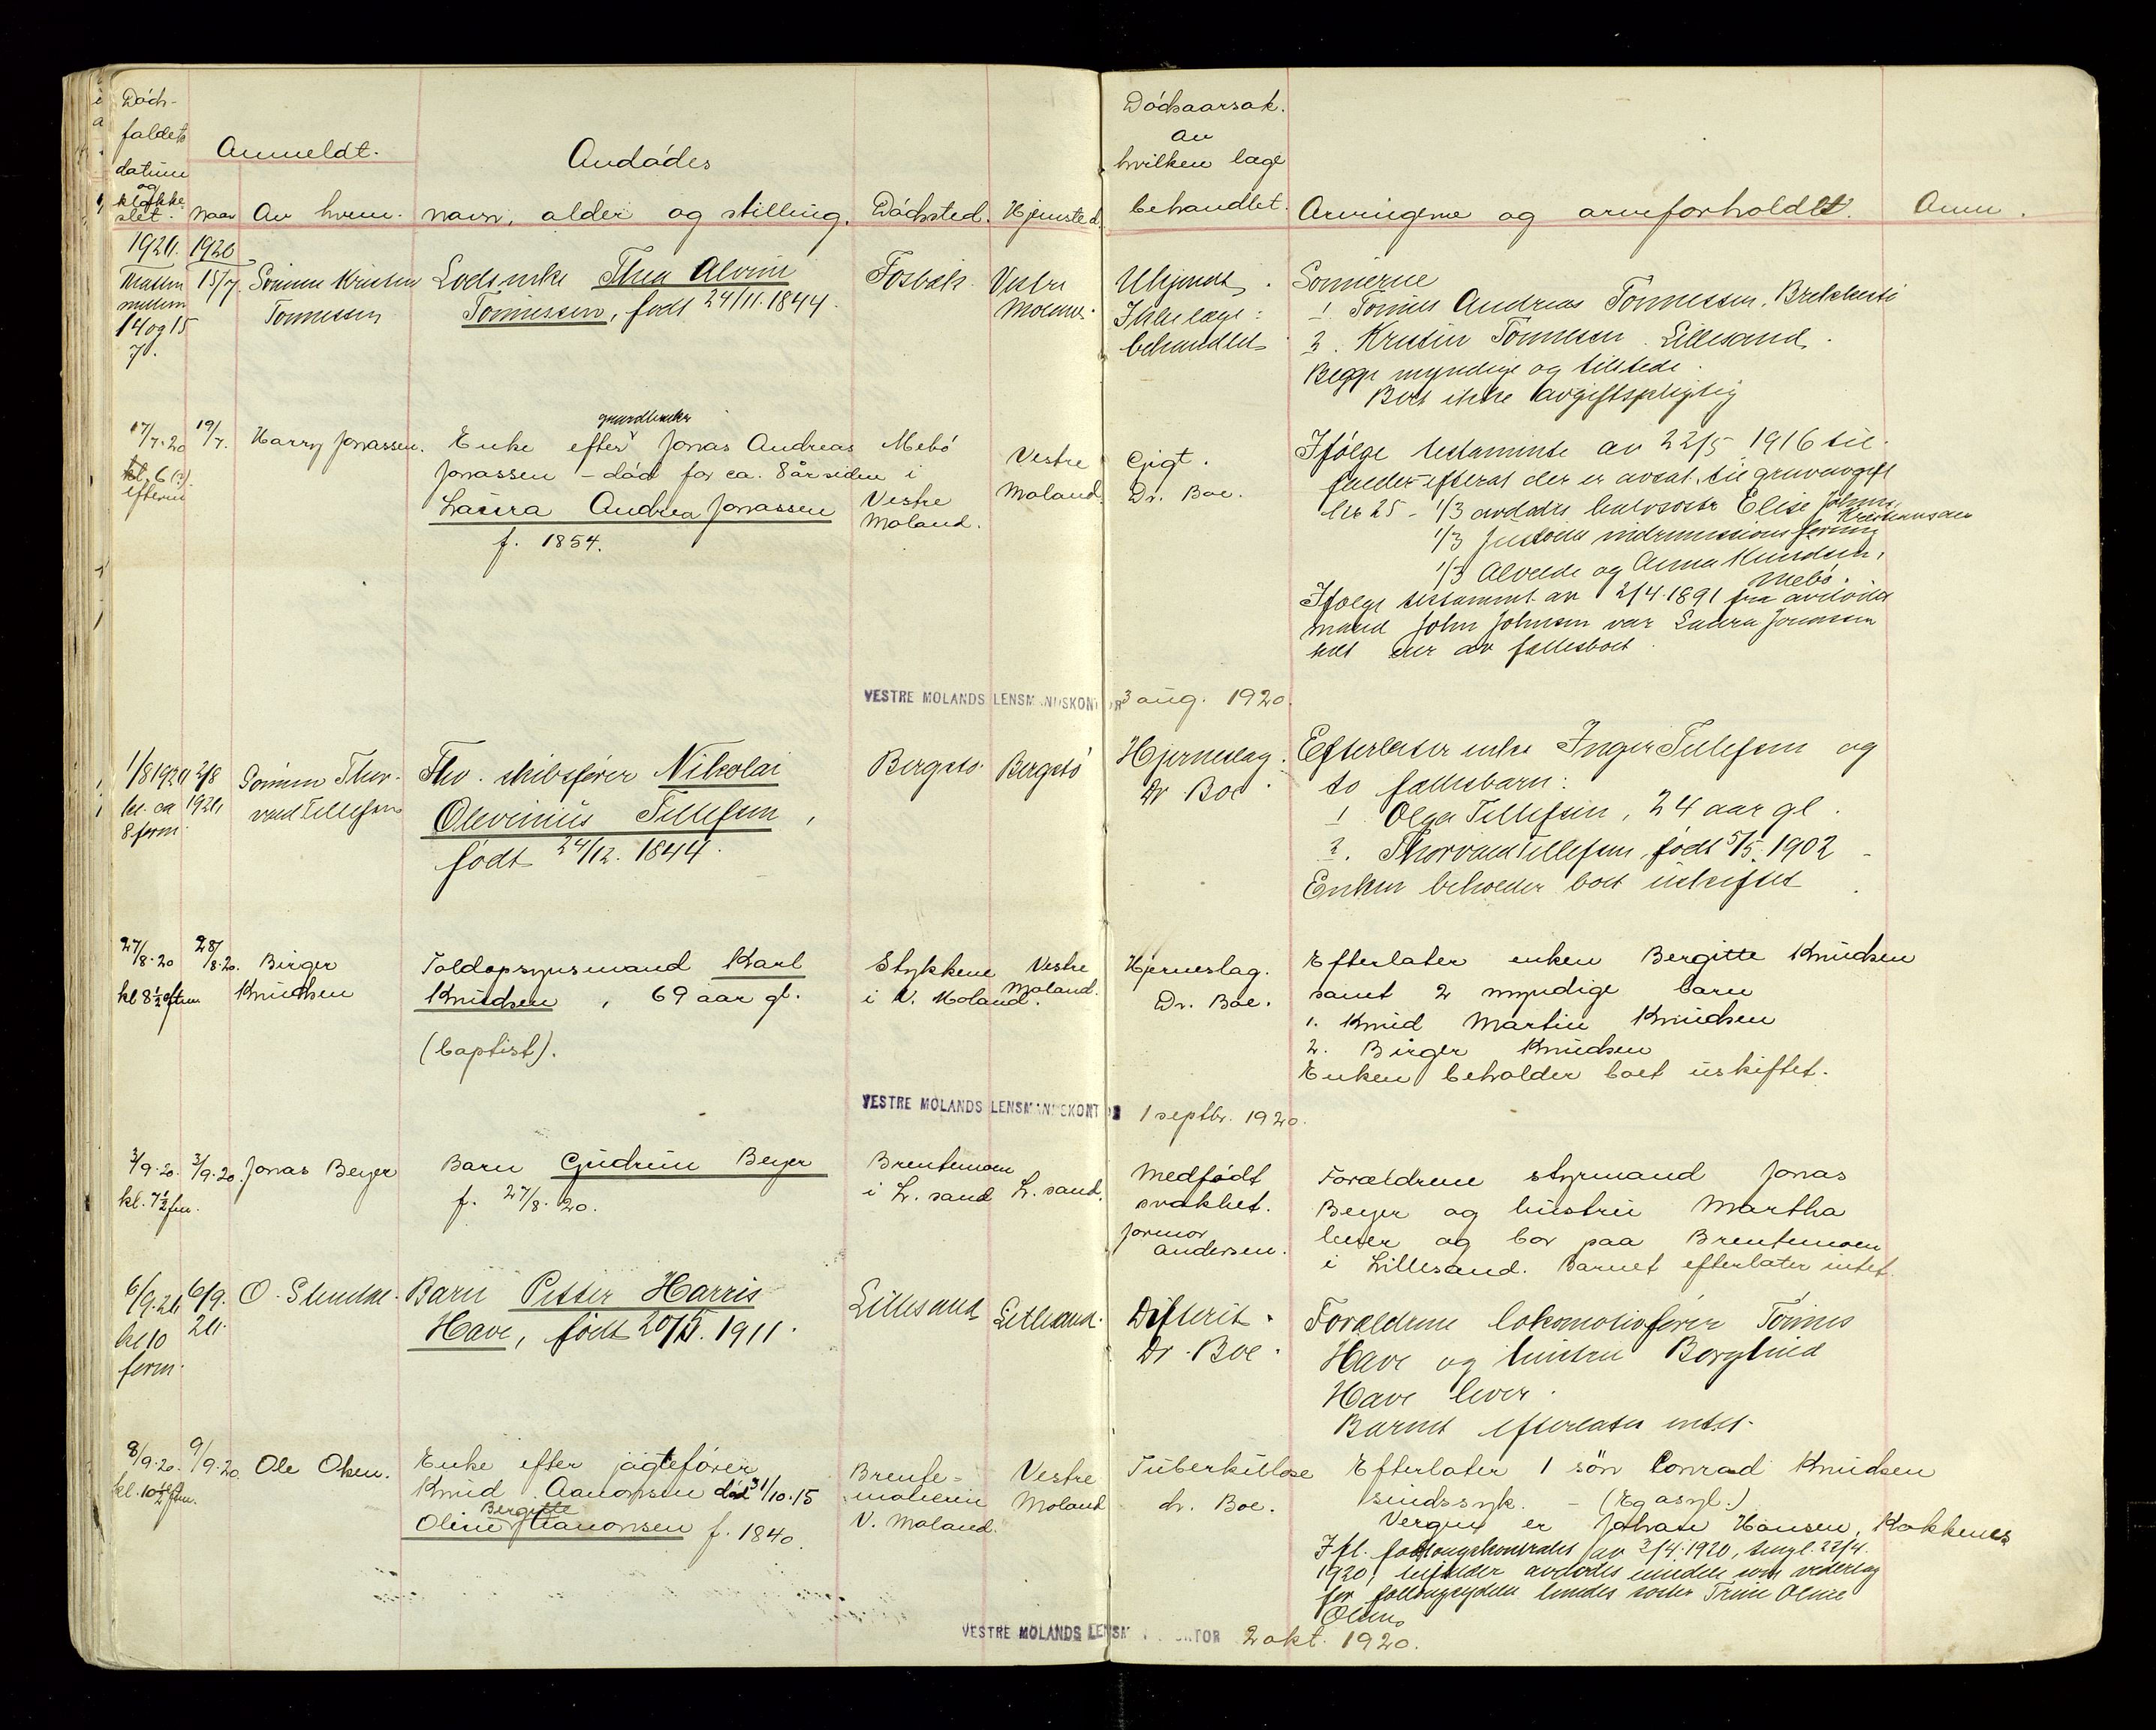 Döds-
faldets
datum
og
klokke
slet.
Anmeldt.
naar
Av hvem.
Avdödes
navn, alder og stilling.
Dödssted.
Hjemsted.
Dödsaarsak.
av
hvilken læge
behandlet.
Arvingerne og arveforholdet.
Anm.
1920. 1920
Natten
mellem
14 og 15
7.
15/7.
Sönnen Kristen
Tönnessen
Lodsenke Thea Alvine
Tönnessen, født 24/11.1844.
Fosbæk.
Vestre
Moland.
Ukjendt.
Ikke læge-
behandlet
Sönnerne
1. Tönnes Andreas Tönnessen, Brekkestö
2. Kristen Tönnessen. Lillesand.
Begge myndige og tilstede.
Boet ikke avgiftspligtig
17/7.20
kl. 6 (?)
efterm
19/7.
Harry Jonassen.
gaardbruker
Enke efter Jonas Andreas
Jonassen - död for ca. 8 år siden i
Laura Andrea Jonassen
f. 1854.
Mebö
Vestre
Moland.
Vestre
Moland.
Gigt.
Dr. Boe.
Ifölge testamente av 22/5 1916 til-
falder - efterat der er avsat til gravavgift
kr 25 - 1/3 avdödes halvsöster Elise Johnsen,
Kristiansand
1/3 Justöens indremissionsforening
1/3 Alvilde og Anna Knudsen,
Mebö.
Ifölge testament av 2/4.1891 fra avdöde
mand John Johnsen var Laura Jonassen
eier av fællesboet.
VESTRE MOLANDS LENSMANDSKONTOR 3 aug. 1920.
1/8 1920
kl. ca
8 form.
2/8
1920
Sönnen Thor-
vald Tellefsen
Fhv. skibsfører Nikolai
Olevinius Tellefsen,
født 24/12. 1844.
Bergstö.
Bergstö
Hjerneslag.
Dr Boe.
Efterlater enke Inger Tellefsen og
to fællesbarn:
1 Olga Tellefsen, 24 aar gl.
2. Thorvald Tellefsen, født 5/5. 1902
Enken beholder boet uskiftet
27/8.20
kl 8½ eftm
28/8.20.
Birger
Knudsen
Toldopsynsmand Karl
Knudsen, 69 aar gl.
(baptist).
Stykkene
i V. Moland.
Vestre
Moland.
Hjerneslag.
Dr. Boe.
Efterlater enken Bergitte Knudsen
samt 2 myndige barn
1. Knud Martin Knudsen
2. Birger Knudsen
Enken beholder boet uskiftet.
VESTRE MOLANDS LENSMANDSKONTOR 1 septbr. 1920.
3/9.20.
kl. 7½ fm.
3/9.20.
Jonas Beyer
Barn Gudrun Beyer
f. 27/8.20.
Brentemoen
i L. sand
L. sand.
Medfödt
svakhet.
Jormor
Andersen.
Forældrene styrmand Jonas
Beyer og hustru Martha
lever og bor paa Brentemoen
i Lillesand. Barnet efterlater intet.
6/9.20
kl 10
form.
6/9.
20.
Barn Petter Harris
Have, født 20/5. 1911.
Lillesand
Lillesand.
Difterit.
Dr. Boe.
Forældrene lokomotivfører Tönnes
Have og hustru Borghild
Have lever.
Barnet efterlater intet.
8/9.20.
kl. 10½ fm.
9/9.20
Ole Olsen.
Enke efter jagtefører
Knud Aanonsen död 31/10.15
Bergitte
Oline Aanonsen f. 1840.
Brente-
V. Moland.
Vestre
Moland
Tuberkulose
dr. Boe.
Efterlater 1 sön Conrad Knudsen
sindssyk. - (Eg asyl.)
Verge er Johan Hansen, Kokkenes
Ifl. föderaadskontrakt av 3/4.1920, tingl. 22/4.
1920, tilfalder avdödes eiendele som vederlag
for hendes söster Trine Oline
Olsen
VESTRE MOLANDS LENSMANDSKONTOR 2 okt. 1920.